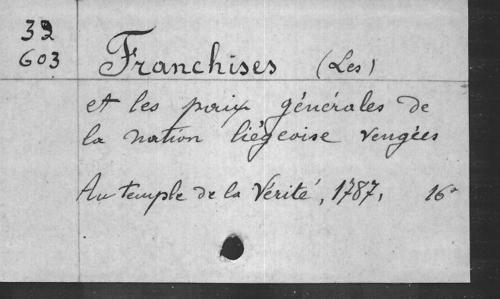 32
603
Franchises (Les)
et les paix générales de
la nation liégeoise vengées
Au temple de la Vérité, 1787, 16°